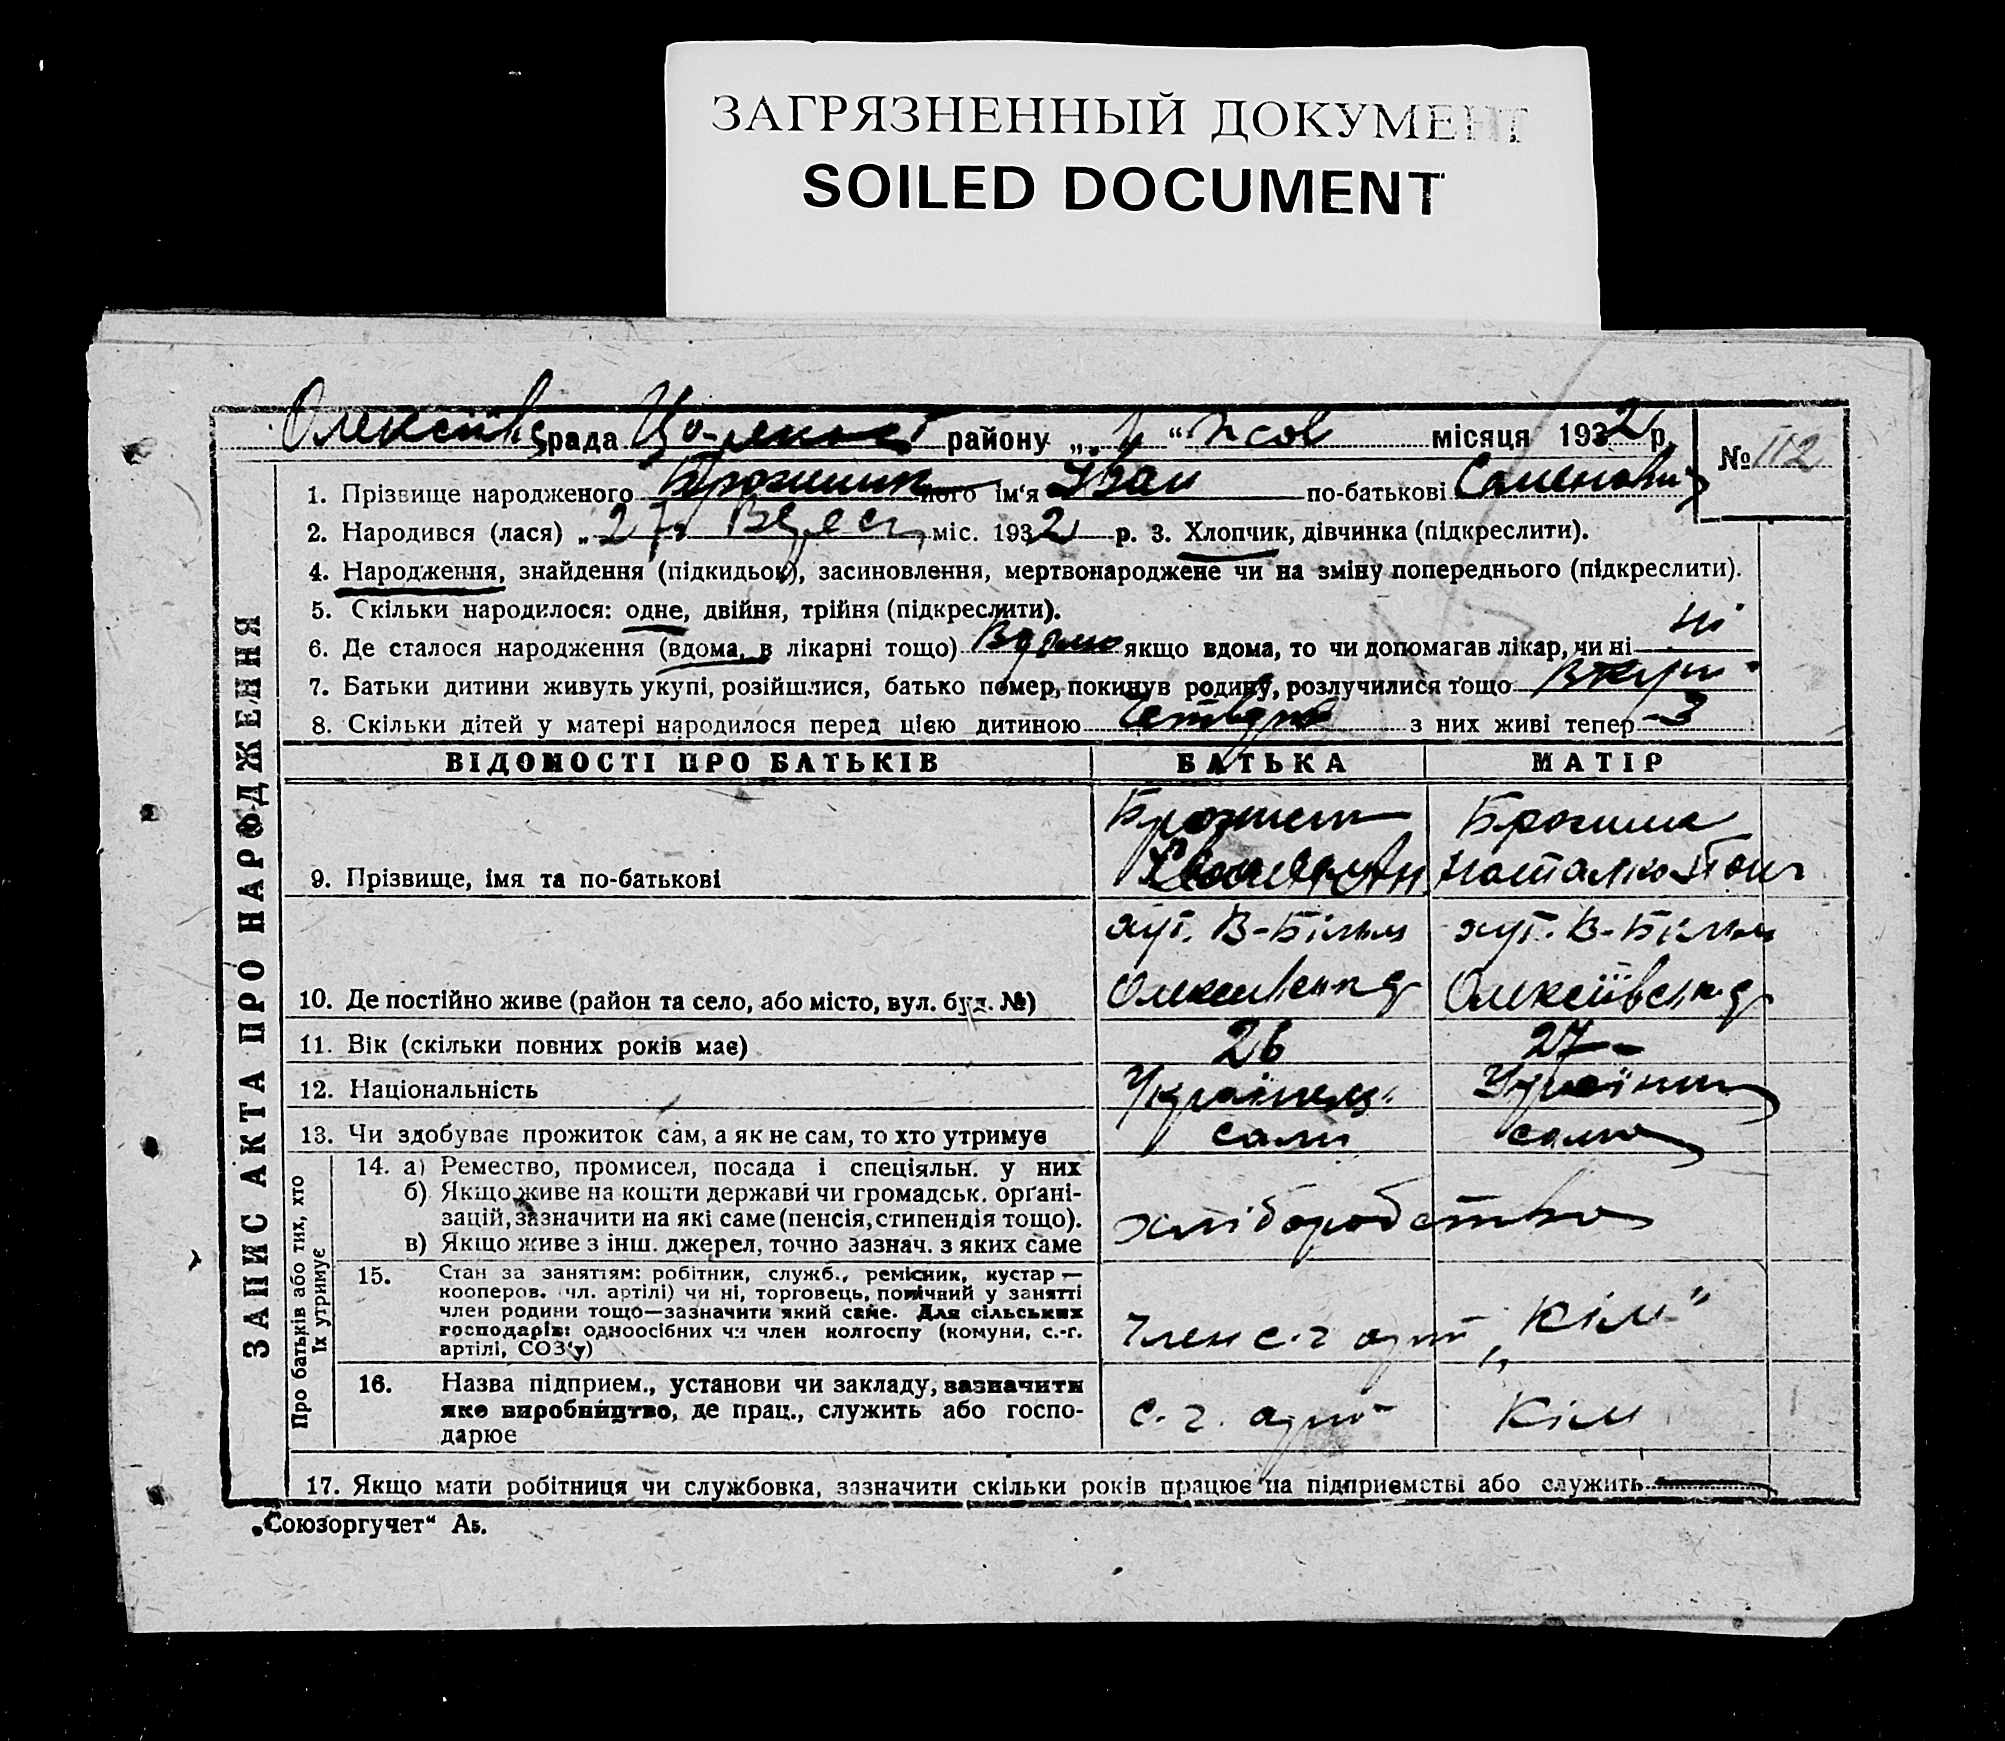 ЗАГРЯЗНЕННЫЙ ДОКУМЕНТ
SOILED DOCUMENT
рада району „ “ місяця 1932 р.
№ 112
1. Прізвище народженого його ім'я Іван по-батькові
2. Народився (лася) „27 міс. 1932 р. 3. Хлопчик, дівчинка (підкреслити).
4. Народження, знайдення (підкидьок), засиновлення, мертвонароджене чи на зміну попереднього (підкреслити).
5. Скільки народилося: одне, двійня, трійня (підкреслити).
6. Де сталося народження (вдома, в лікарні тощо) Вдома якщо вдома, то чи допомагав лікар, чи ні ні
7. Батьки дитини живуть укупі, розійшлися, батько помер, покинув родину, розлучилися тощо
8. Скільки дітей у матері народилося перед цією дитиною з них живі тепер 3
ЗАПИС АКТА ПРО НАРОДЖЕННЯ
ВІДОМОСТІ ПРО БАТЬКІВ БАТЬКА МАТІР
9. Прізвище, імя та по-батькові
хут. В-Більм хут. В-Більм
10. Де постійно живе (район та село, або місто, вул. буд. №)
11. Вік (скільки повних років має) 26 27
12. Національність Українець
13. Чи здобуває прожиток сам, а як не сам, то хто утримує сам сама
Про батьків або тих, хто
їх утримує
14. а) Ремество, промисел, посада і спеціяльн. у них
б) Якщо живе на кошти держави чи громадськ. орґані-
зацій, зазначити на які саме (пенсія, стипендія тощо).
в) Якщо живе з інш. джерел, точно зазнач. з яких саме
хліборобство
15. Стан за заняттям: робітник, служб., ремісник, кустар —
кооперов. чл. артілі) чи ні, торговець, помічний у занятті
член родини тощо—зазначити який саме. Для сільських
господарів: одноосібних чи член колгоспу (комуни, с.-г.
артілі, СОЗ'у)
Член с-г арт „Кім"
16. Назва підприєм., установи чи закладу, зазначити
яке виробництво, де прац., служить або госпо-
дарює
с. г. арт Кім
17. Якщо мати робітниця чи службовка, зазначити скільки років працює на підприємстві або служить
„Союзоргучет“ А5.